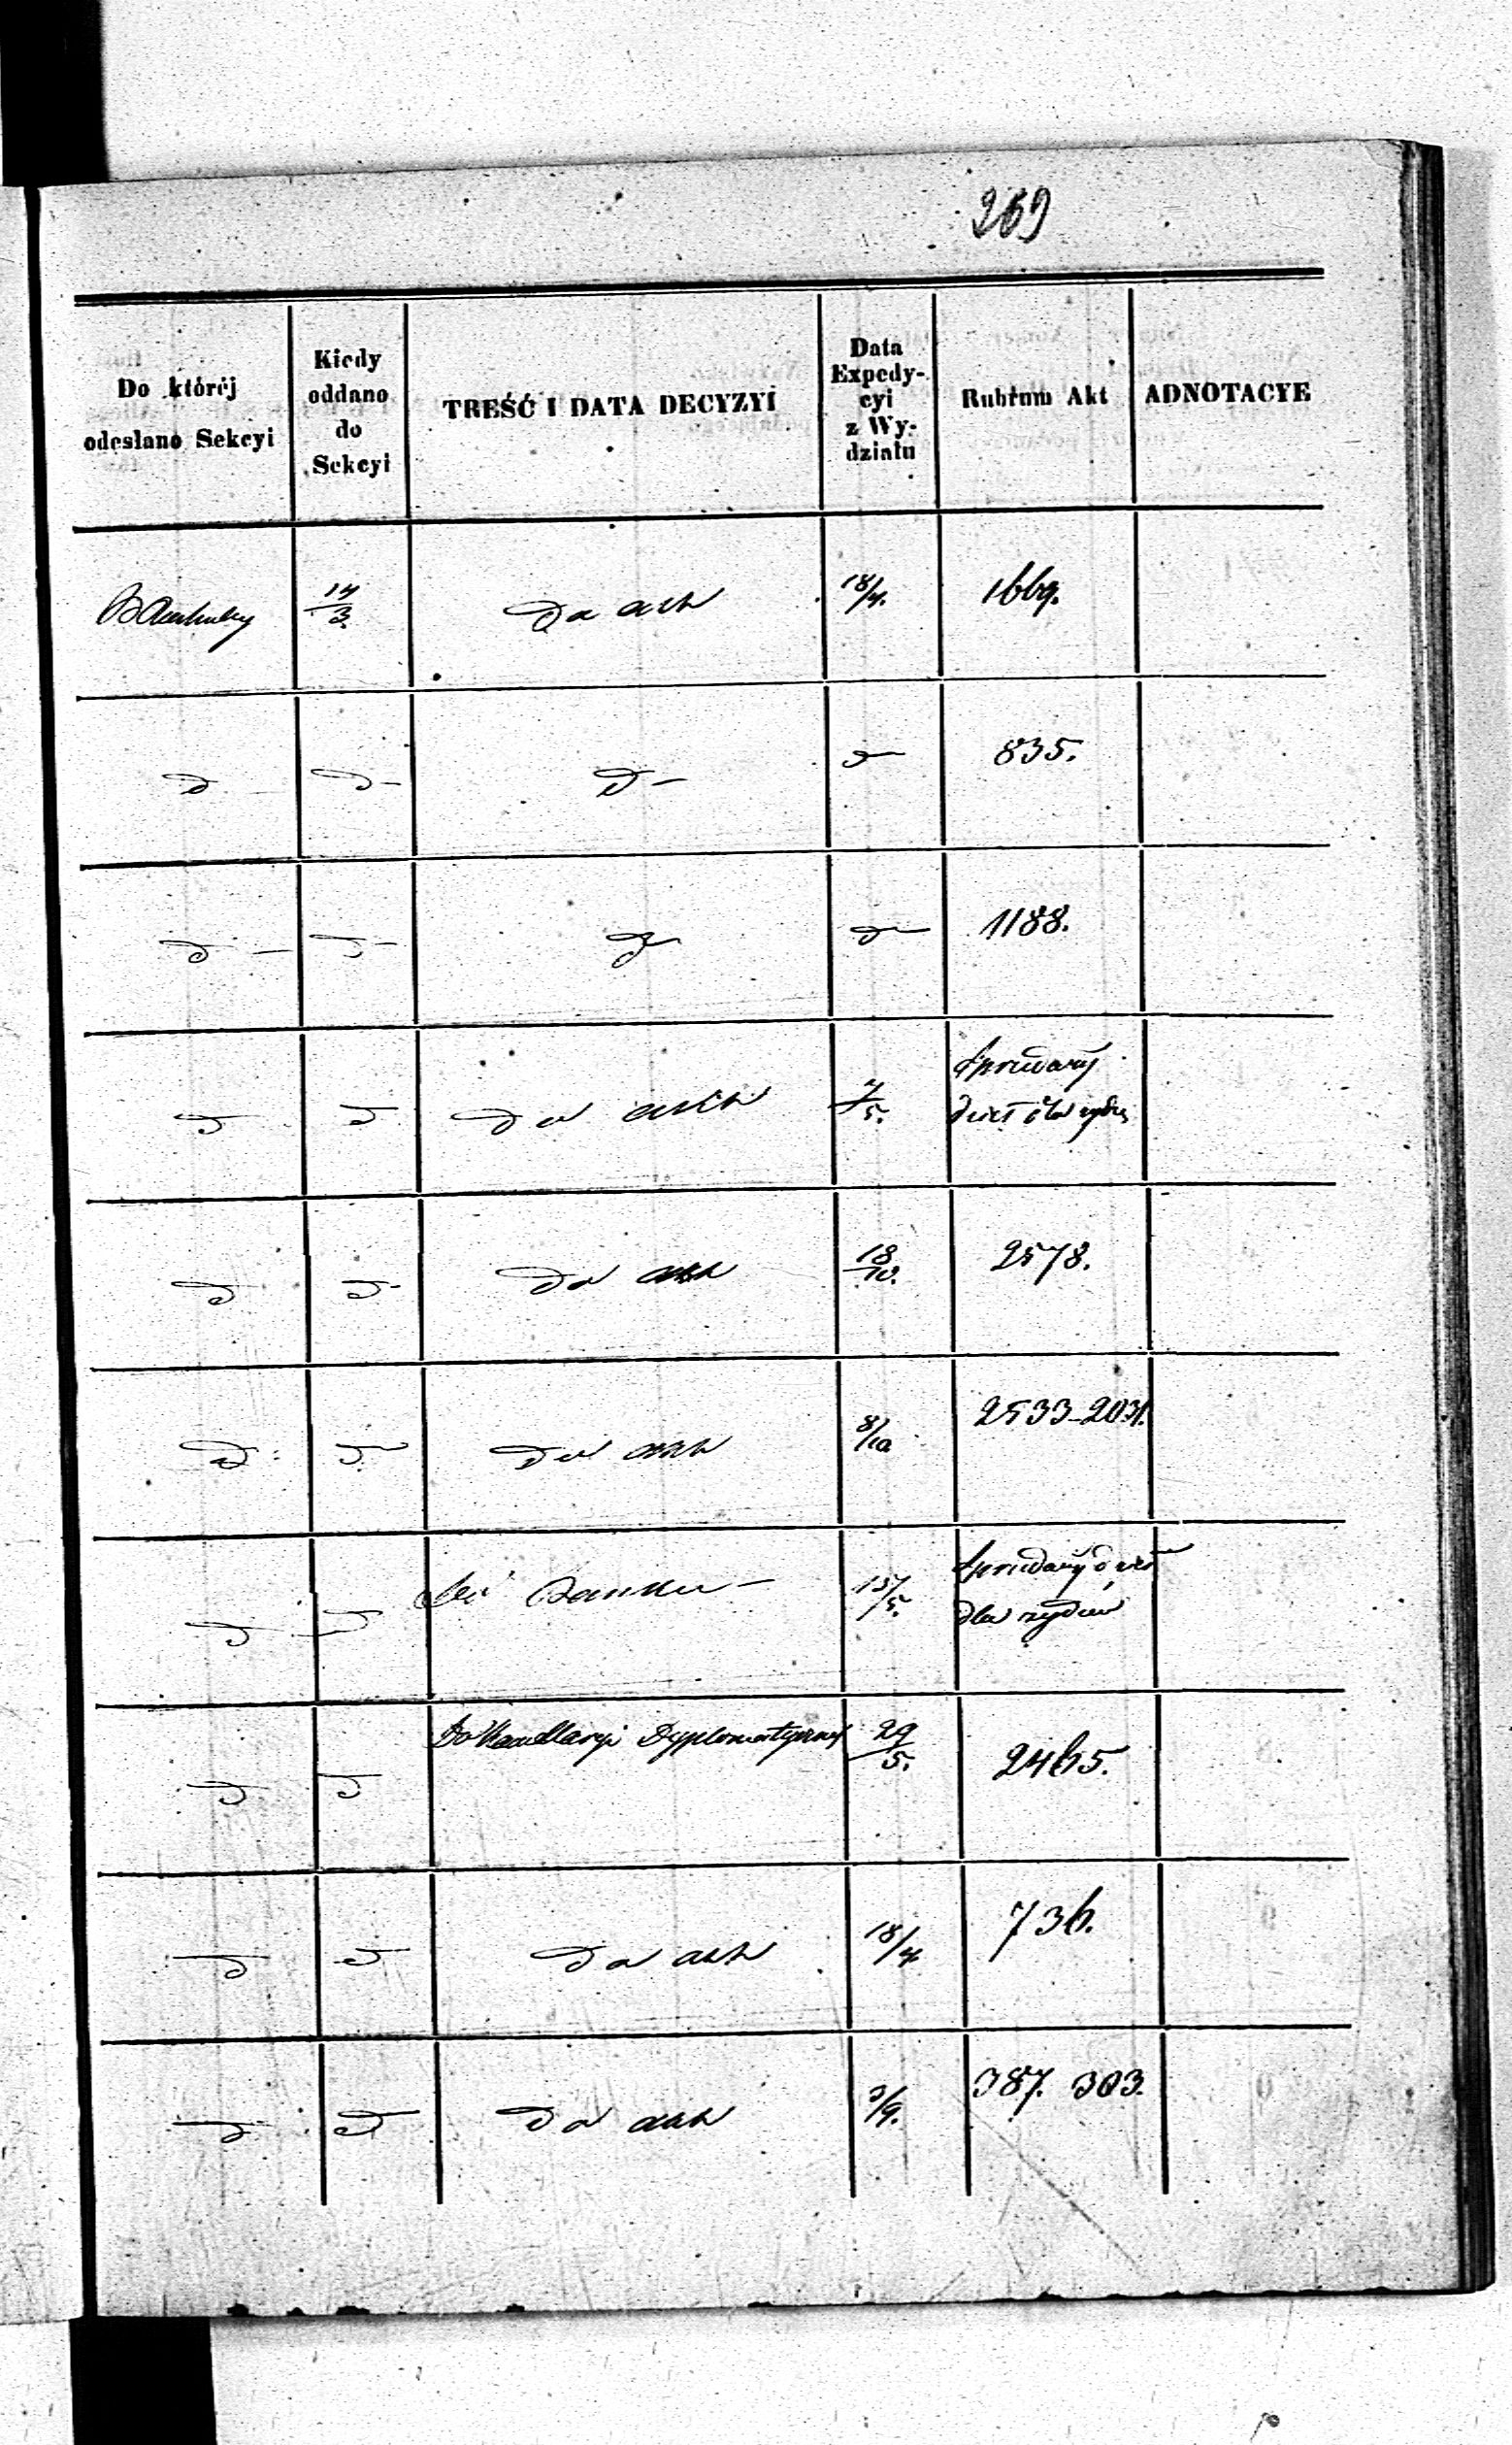 269
Do której odesłano Sekcyi
Kiedy oddano do Sekcyi
TREŚĆ I DATA DECYZYI
Data Expedycyi z Wydziału
Rubrum Akt
ADNOTACYE
14/3. Do akt 18/4. 1669.
d d- d- d- 835.
d- d- d- d- 1188.
d d Do akt 7/5. Sprzedaży
d d- Do akt 18/10. 2578.
d d- Do akt 8/10 2533-2031.
d d Do Banku- 15/5. Sprzedaży
dla żydów
d d Do Kancellaryi Dyplomatycznej 29/5. 2465.
d d Do akt 18/4. 736.
d d Do akt 3/9. 387. 303.